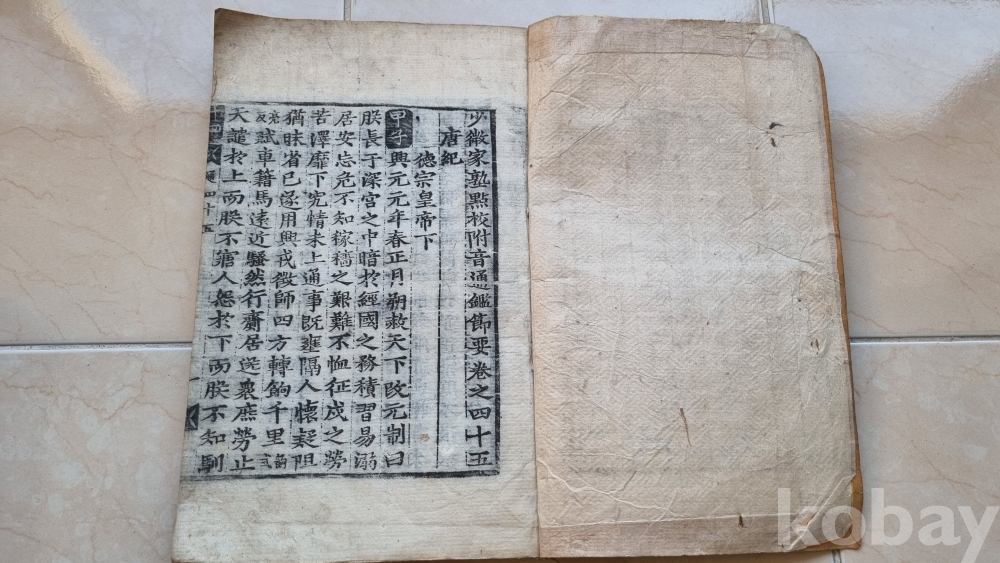 少微家塾點校附音通鑑節要卷之四十五
唐紀
德宗皇帝下
甲子興元元年春正月朔赦天下改元制曰
朕長于深宮之中暗於經國之務積習易溺
居安忘危不知稼穡之艱難不恤征戍之勞
苦澤靡下究情未上通事既壅隔人懷疑阻
猶昧省己遂用興戎徵師四方轉餉千里
賦車籍馬遠近騷然行齎居送衆庶勞止
天譴於上而朕不寤人怨於下而朕不知馴
四十五
kobay